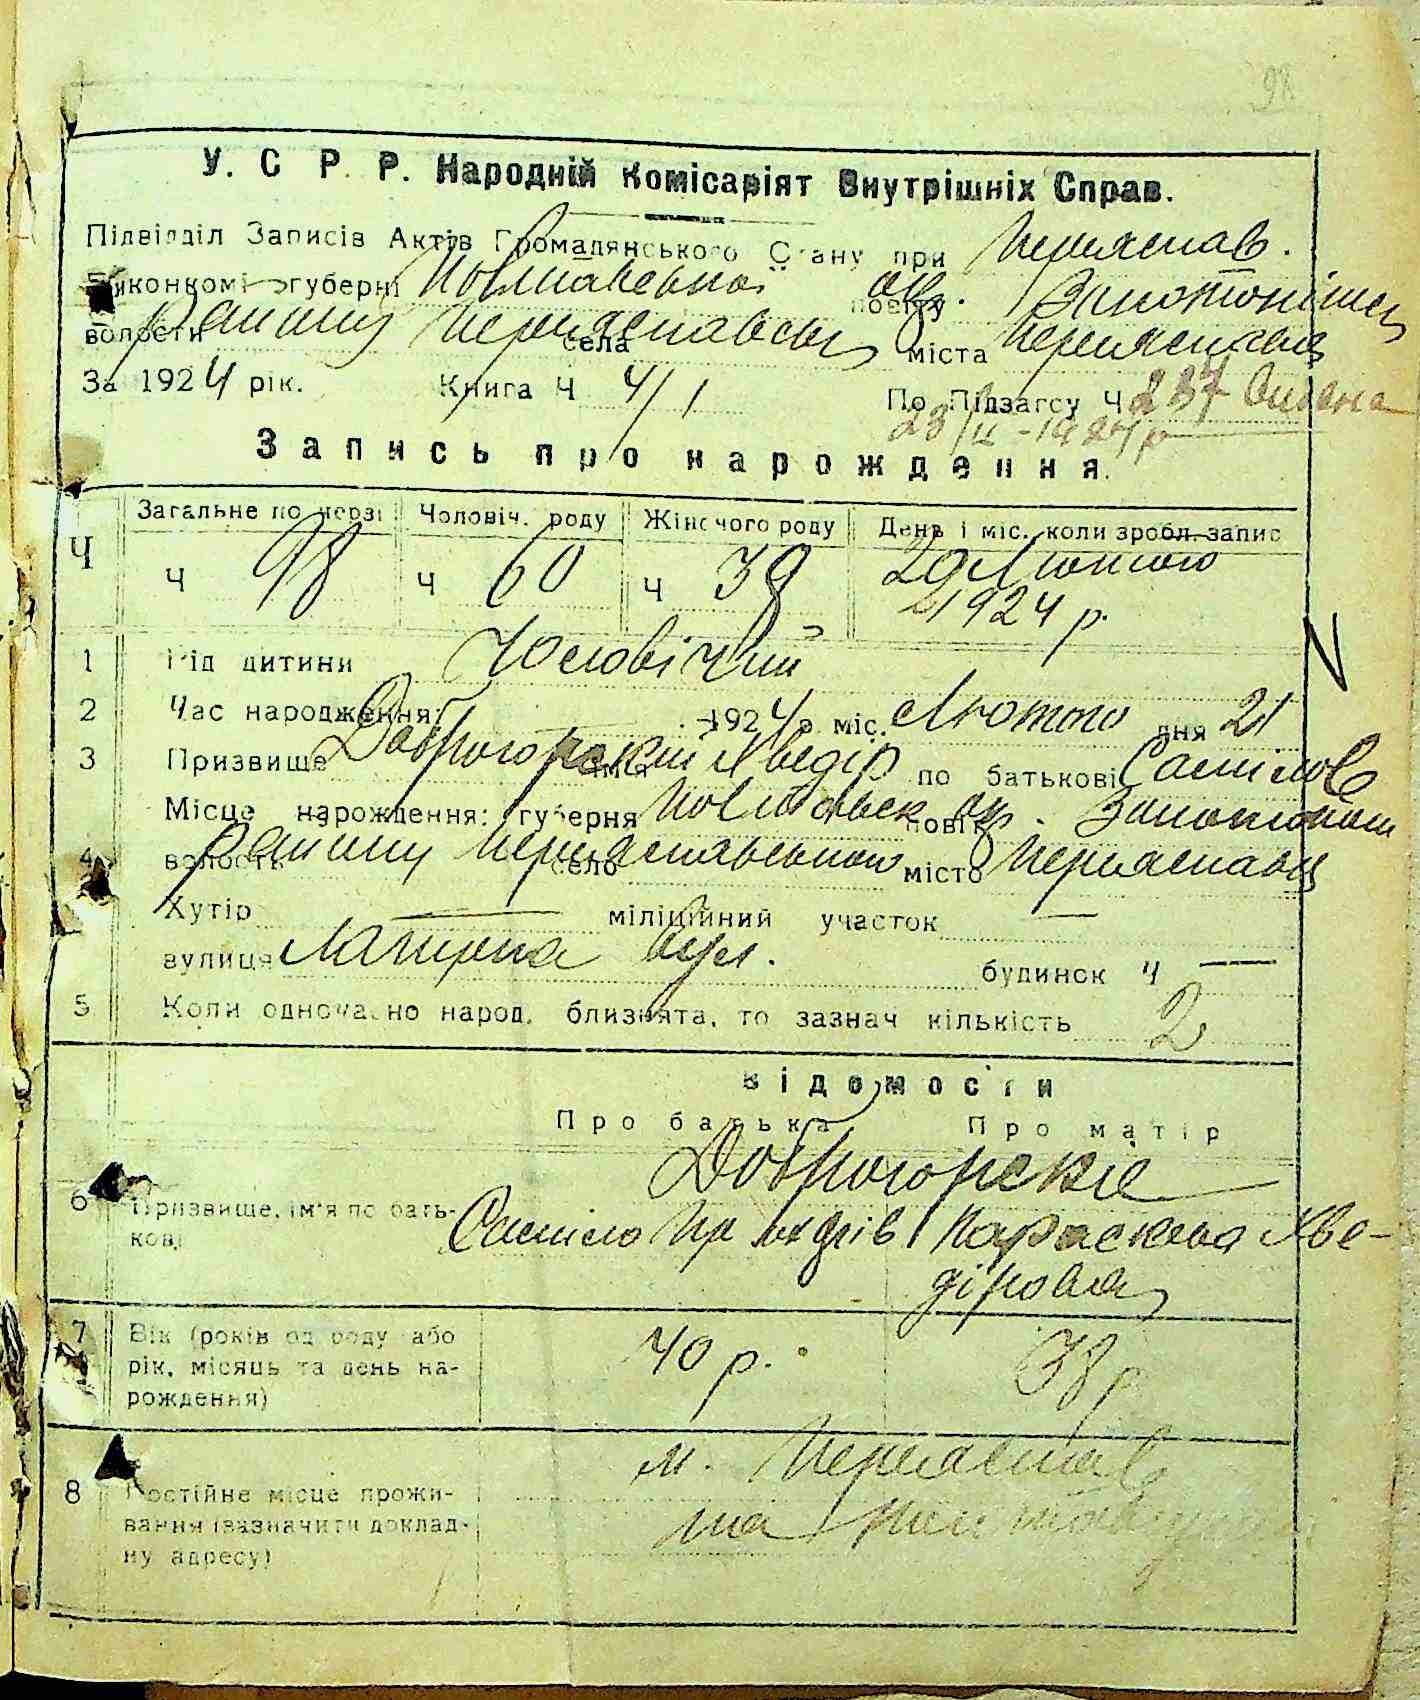 98
У. С Р. Р. Народній Комісаріят Внутрішніх Справ.
Підвідділ Записів Актів Громадянського Стану при Переяслав.
Виконкомі губерні Полтавської повіту окр. Золотоніськ
волости Району Переяславськ села міста Переяслав
За 1924 рік. Книга Ч 4/1 По Підзагсу Ч 237
Запись про народження.
Ч Загальне по черзі Чоловіч. роду Жіночого роду День і міс. коли зробл. запис
Ч 98 Ч 60 Ч 38 29 Лютого
1924 р.
1 Рід дитини Чоловічий
2 Час народження: 1924 р міс. Лютого дня 21
3 Призвище Доброгорский ім'я Хведір по батькові Самілов
Місце нарождення: губерня Полтавськ повіт окр. Золотоніськ
4 волость Району село Переяславського місто Переяслав
Хутір — міліційний участок —
вулиця вул. будинок Ч —
5 Коли одночасно народ. близнята, то зазнач кількість 2
Відомости
Про батька Про матір
Доброгорскіе
6 Призвище, ім'я по бать- Саміло Параскева Хве-
кові дірова
7 Вік (років од роду або 40 р. 38 р
рік, місяць та день на-
рождення)
8 Постійне місце прожи- м. Переяслав
вання (зазначити доклад- на
ну адресу)